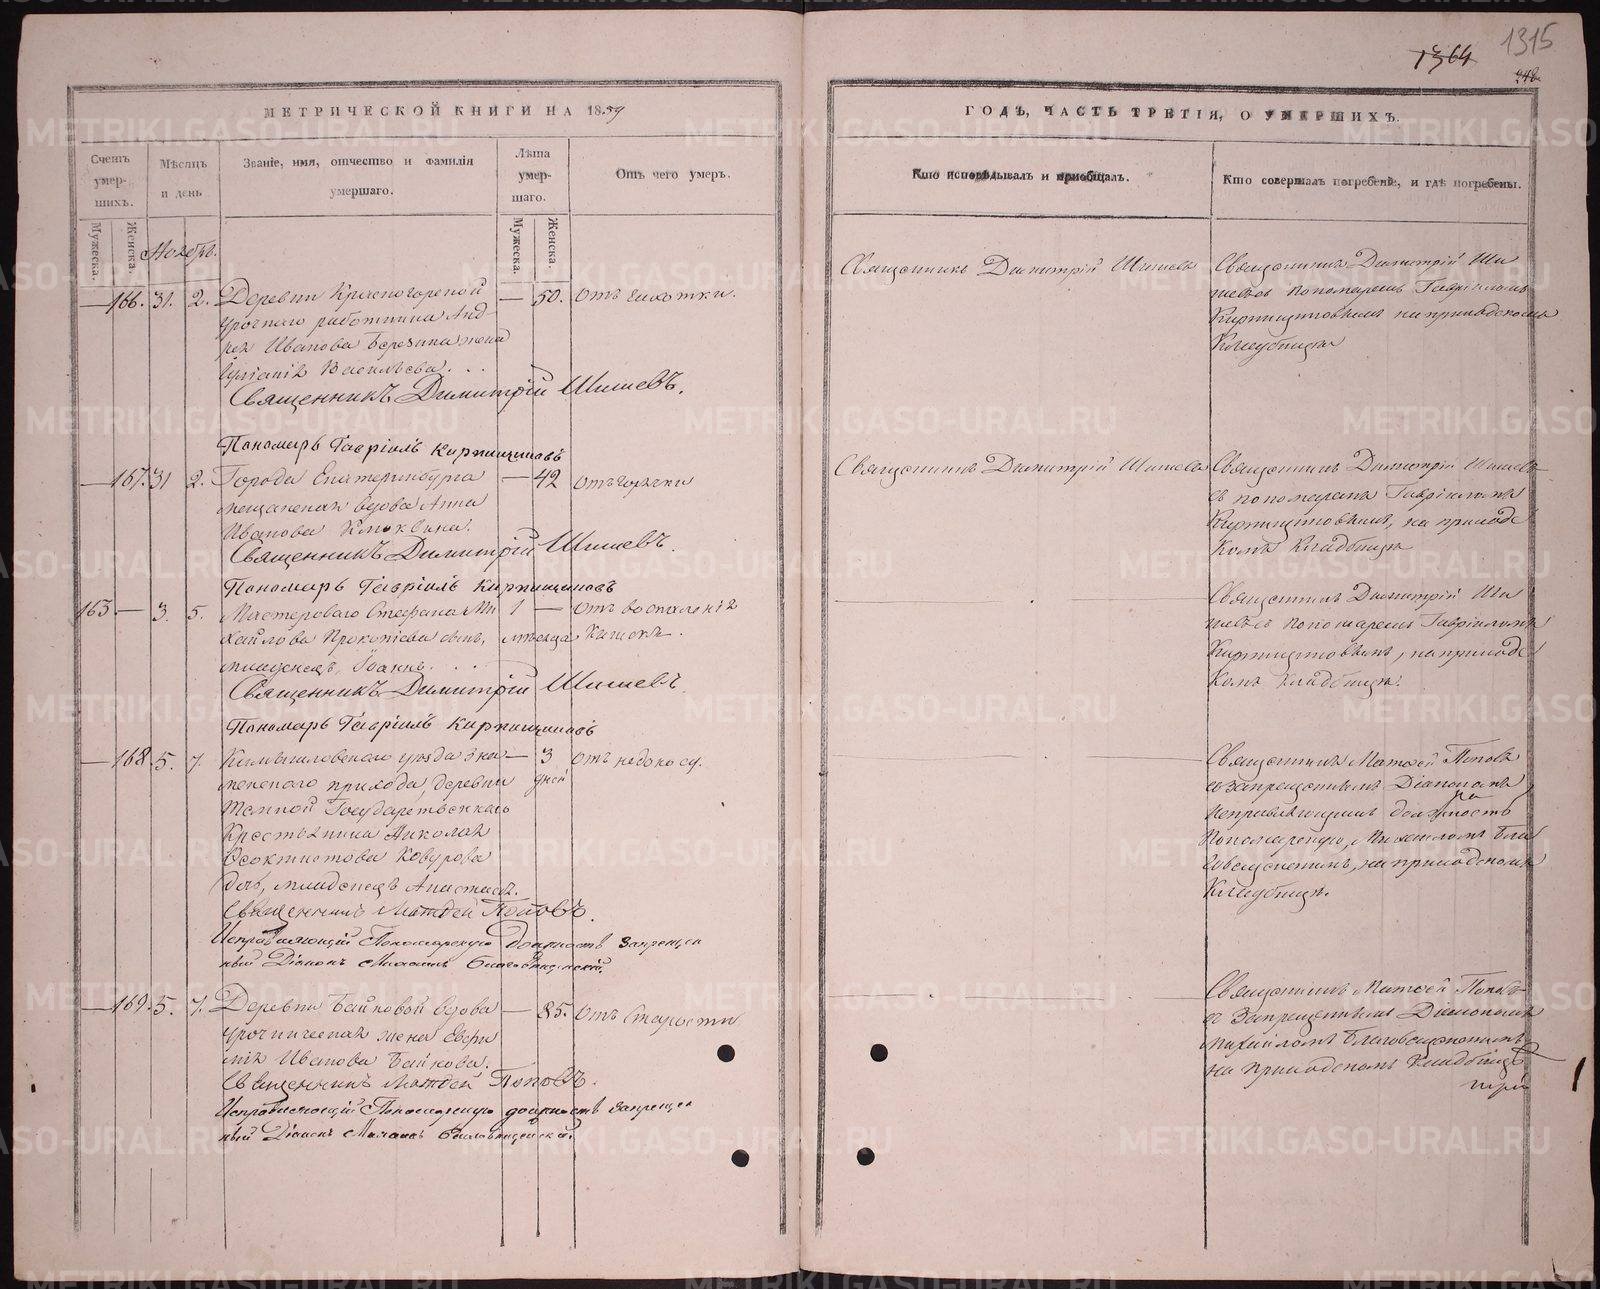 1315
1364
МЕТРИЧЕСКОЙ КНИГИ НА 1859
ГОДЪ, ЧАСТЬ ТРЕТІЯ, О УМЕРШИХЪ.
Счетъ умершихъ.
Мѣсяцъ и день
Званіе, имя, отчество и фамилія умершаго.
Лѣта умершаго.
Отъ чего умеръ.
Кто исповѣдывалъ и пріобщалъ.
Кто совершалъ погребеніе, и гдѣ погребены.
Мужеска.
Женска.
Мужеска.
Женска.
Ноябрь.
— 166. 31. 2. Деревни Красногорской — 50. Отъ чахотки.
урочнаго работника Анд-
рея Иванова Березина жена
Іуліанія Васильева. . .
Священникъ Димитрій Шишевъ.
Пономарь Гавріилъ Кирпищиковъ
Священникъ Димитрій Шишевъ
Священникъ Димитрій Ши
шевъ пономаремъ Гавріиломъ
Кирпищиковымъ на приходскомъ
Кладбищѣ
— 167. 31 2. Города Екатеринбурга — 42 Отъ горячки
мещанская вдова Анна
Иванова
Священникъ Димитрій Шишевъ.
Пономарь Гавріилъ Кирпищиковъ
Священникъ Димитрій Шишевъ
Священникъ Димитрій Шишевъ
съ пономаремъ Гавріиломъ
Кирпищиковымъ, на приходс
комъ Кладбищѣ
163 — 3. 5. Мастероваго Стефана Ми 1 — Отъ воспаленія
хайлова Прокопіева сынъ, мѣсяца Кишокъ.
младенецъ Іоаннъ. . .
Священникъ Димитрій Шишевъ.
Пономарь Гавріилъ Кирпищиковъ
Священникъ Димитрій Ши
шевъ съ пономаремъ Гавріиломъ
Кирпищиковымъ, на приходс
комъ Кладбищѣ.
— 168. 5. 7. Камышловскаго уѣзда Зна — 3 Отъ недоносу.
менскаго прихода, деревни дней
Темной Государственнаго
Крестьянина Николая
Ѳеоктистова
дочь, младенецъ Анастасія.
Священникъ Матѳей Поповъ.
Исправляющій Пономарскую должность Запрещен
ный Діаконъ Михаилъ Благовѣщенскій.
Священникъ Матѳей Поповъ
съ запрещеннымъ Діакономъ
исправляющимъ должность
Пономарскую, Михаиломъ Бла
говѣщенскимъ, на приходскомъ
Кладбищѣ.
— 169. 5. 7. Деревни Байновой вдова — 85. Отъ Старости
урочническая жена Евѳи
мія Иванова Байнова.
Священникъ Матѳей Поповъ.
Исправляющій Пономарскую должность Запрещен
ный Діаконъ Михаилъ Благовѣщенскій
Священникъ Матѳей Поповъ
съ Запрещеннымъ Діакономъ
Михаиломъ Благовѣщенскимъ
на приходскомъ Кладбищѣ
METRIKI.GASO-URAL.RU